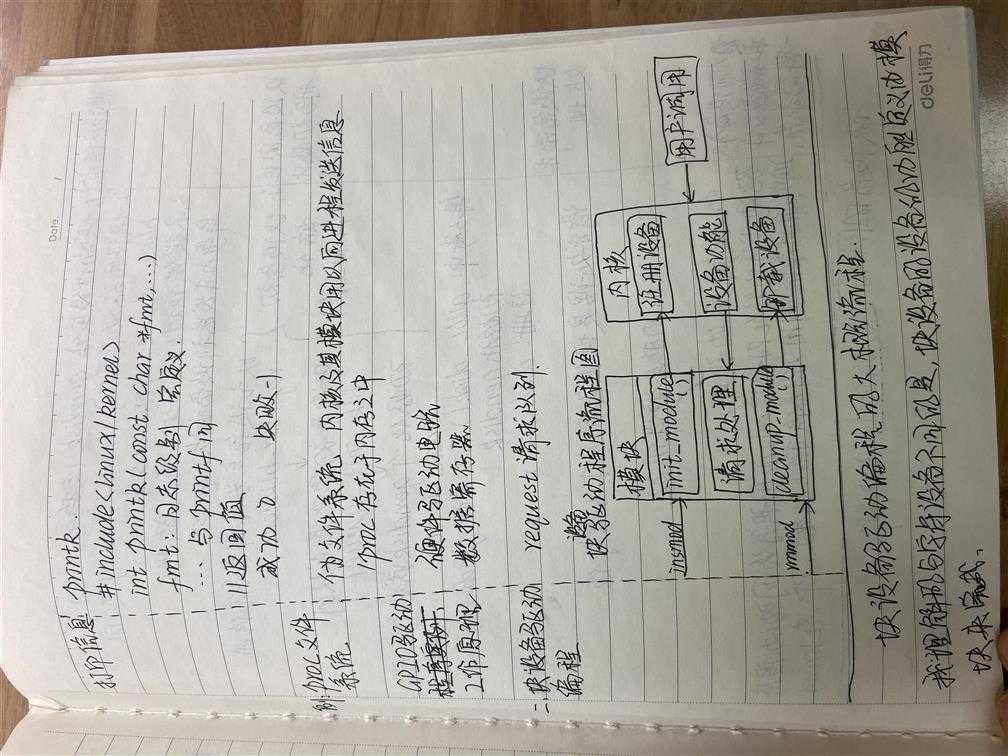 Date.
打印信息 printk.
#include<linux/kernel>
int printk(const char *fmt,...)
fmt:日志级别 宏定义.
... 与printf同
//返回值
成功 0 失败-1
proc文件系统. 伪文件系统 内核及其模块用以向进程发送信息.
/proc存在于内存之中
GPIO驱动 硬件驱动电路
工作原理. 数据寄存器.
二.块设备驱动编程 request请求队列.
块驱动程序流程图
模块
内核
insmod
init_module()
注册设备
用户调用
请求处理
设备功能
rmmod
cleanup_module()
卸载设备
块设备驱动编程、可大概流程.
我理解的与字符设备不同的是,块设备的设备的功能是又由模
块来完成.
deli得力